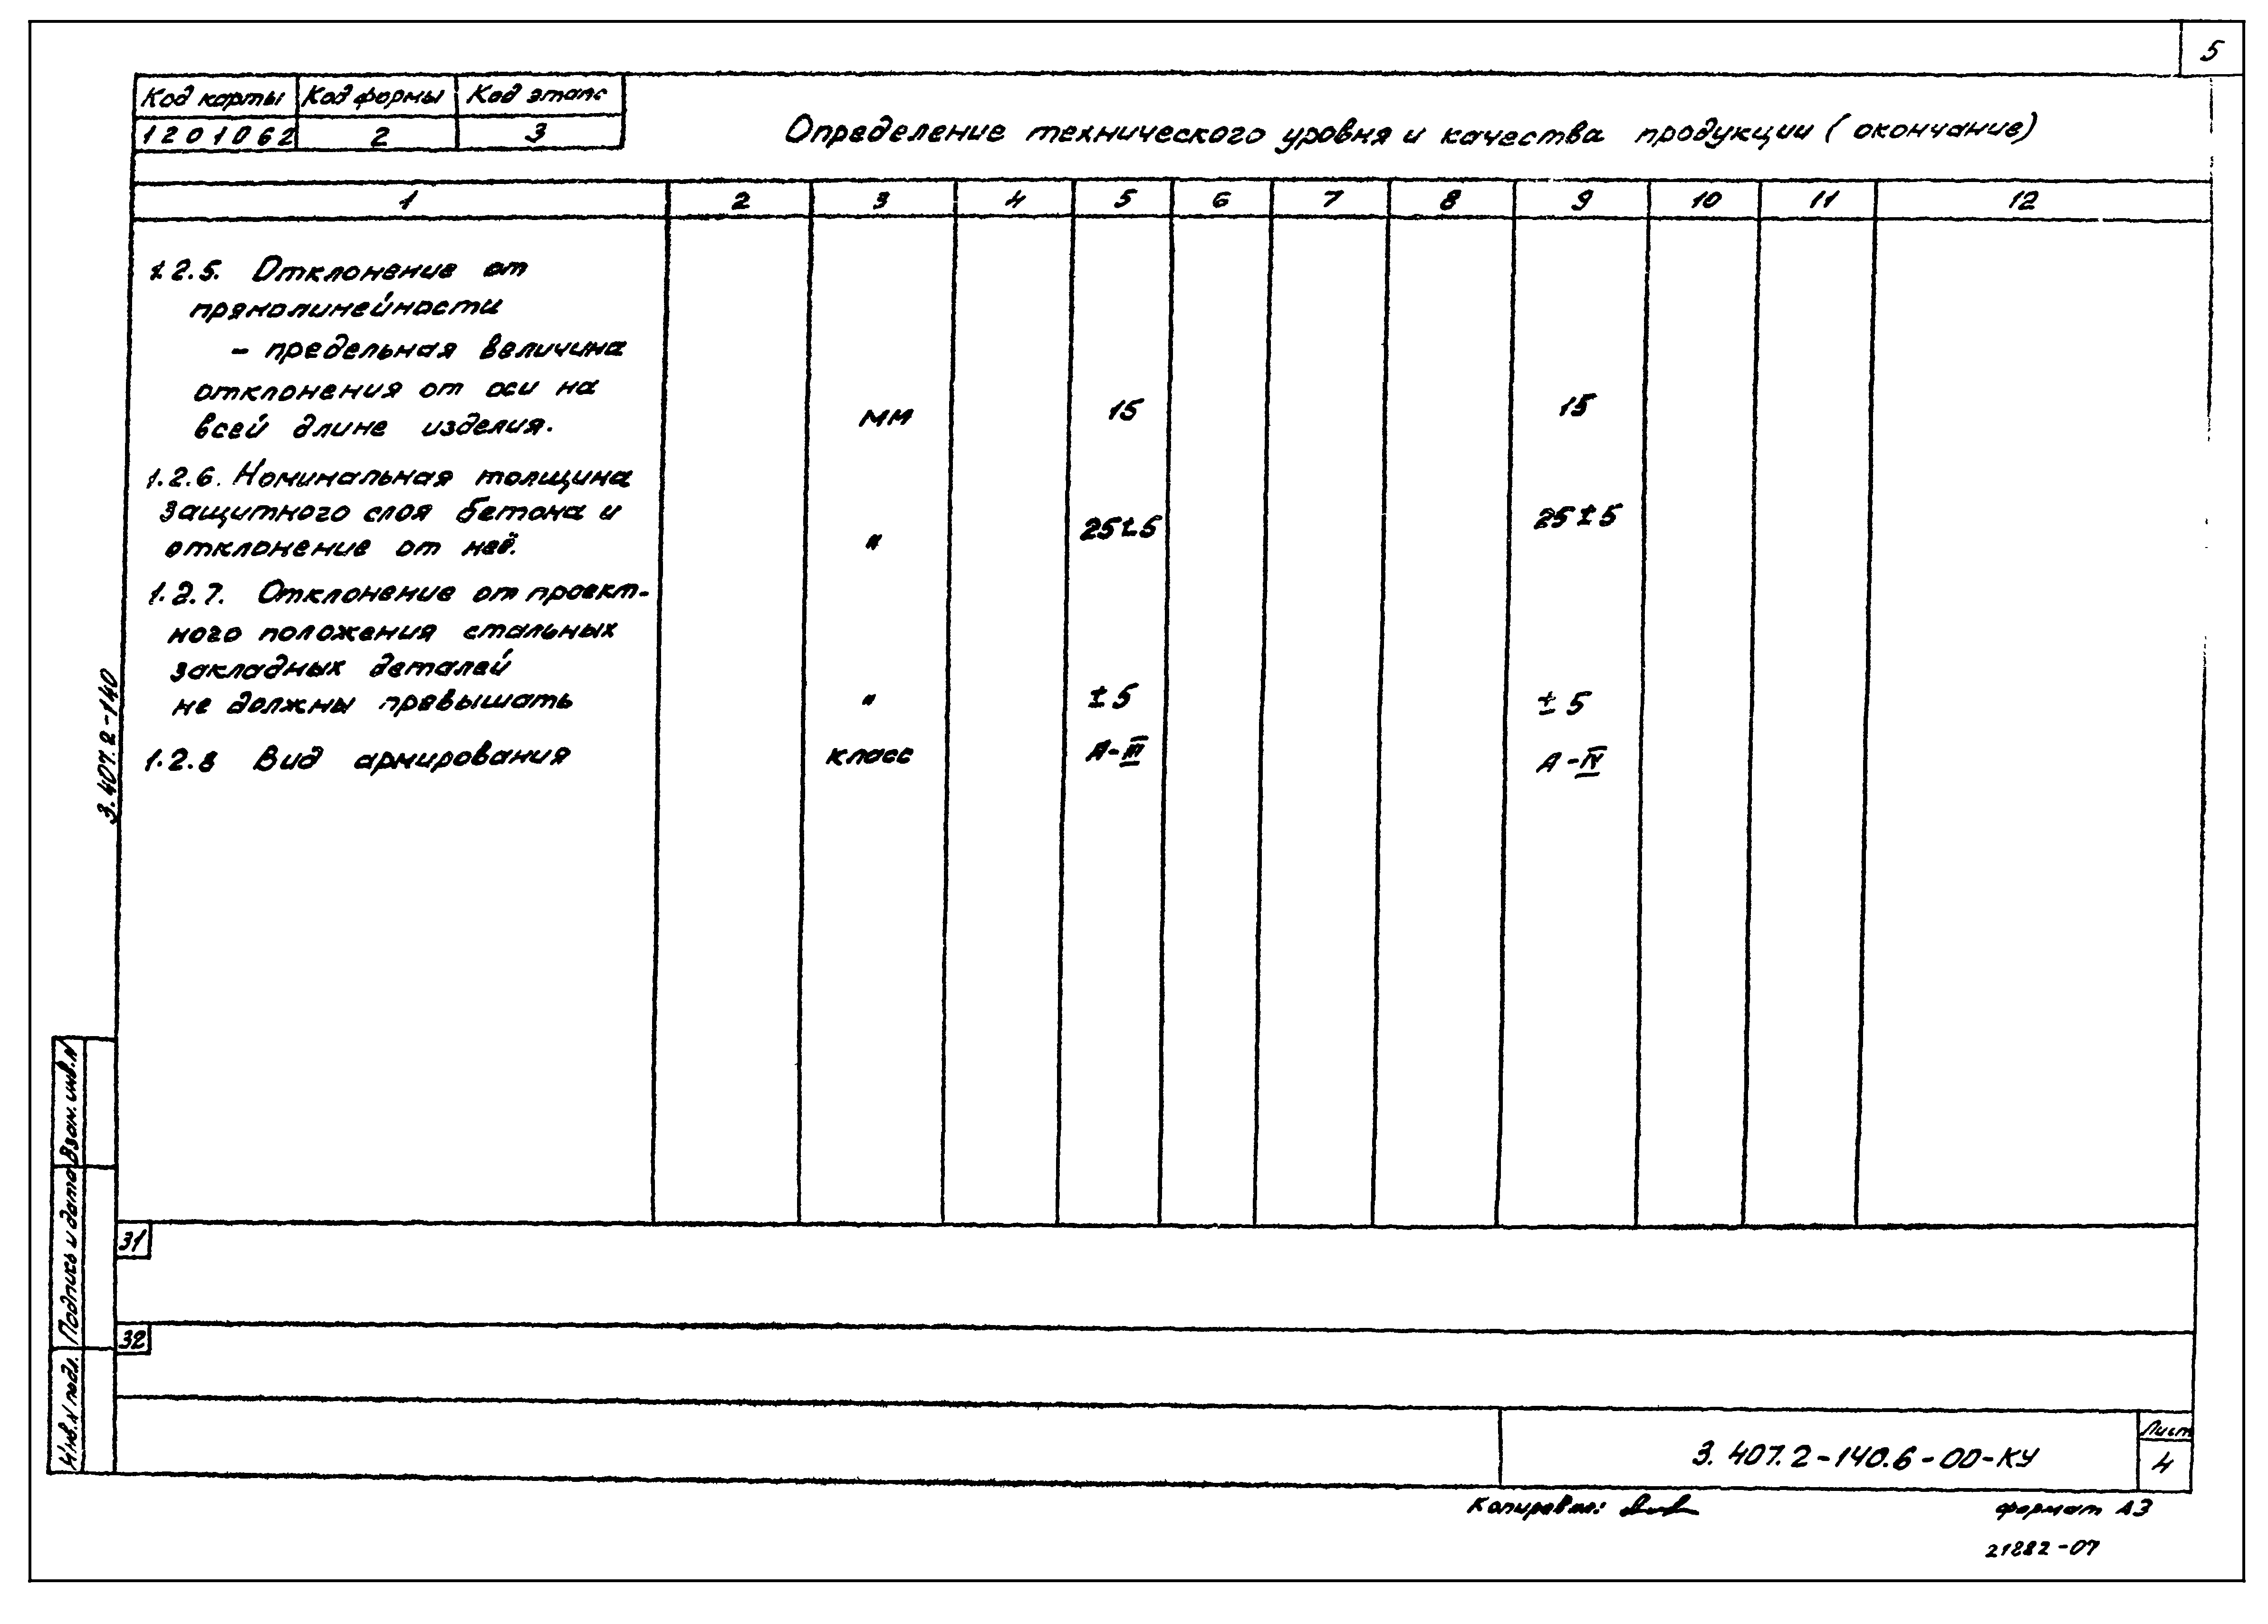 5
Код карты Код формы Код этапа
1201062 2 3
Определение технического уровня и качества продукции (окончание)
1 2 3 4 5 6 7 8 9 10 11 12
1.2.5. Отклонение от
прямолинейности
- предельная величина
отклонения от оси на
всей длине изделия. мм 15 15
1.2.6. Номинальная толщина
защитного слоя бетона и
отклонение от неё. " 25±5 25±5
1.2.7. Отклонение от проект-
ного положения стальных
закладных деталей
не должны превышать " ±5 ±5
1.2.8 Вид армирования класс А-III А-IV
3.407.2-140
Взам. инв. N
Подпись и дата
Инв. N подл.
31
32
3.407.2-140.6-00-КУ
Лист
4
Копировал:
формат А3
21882-07